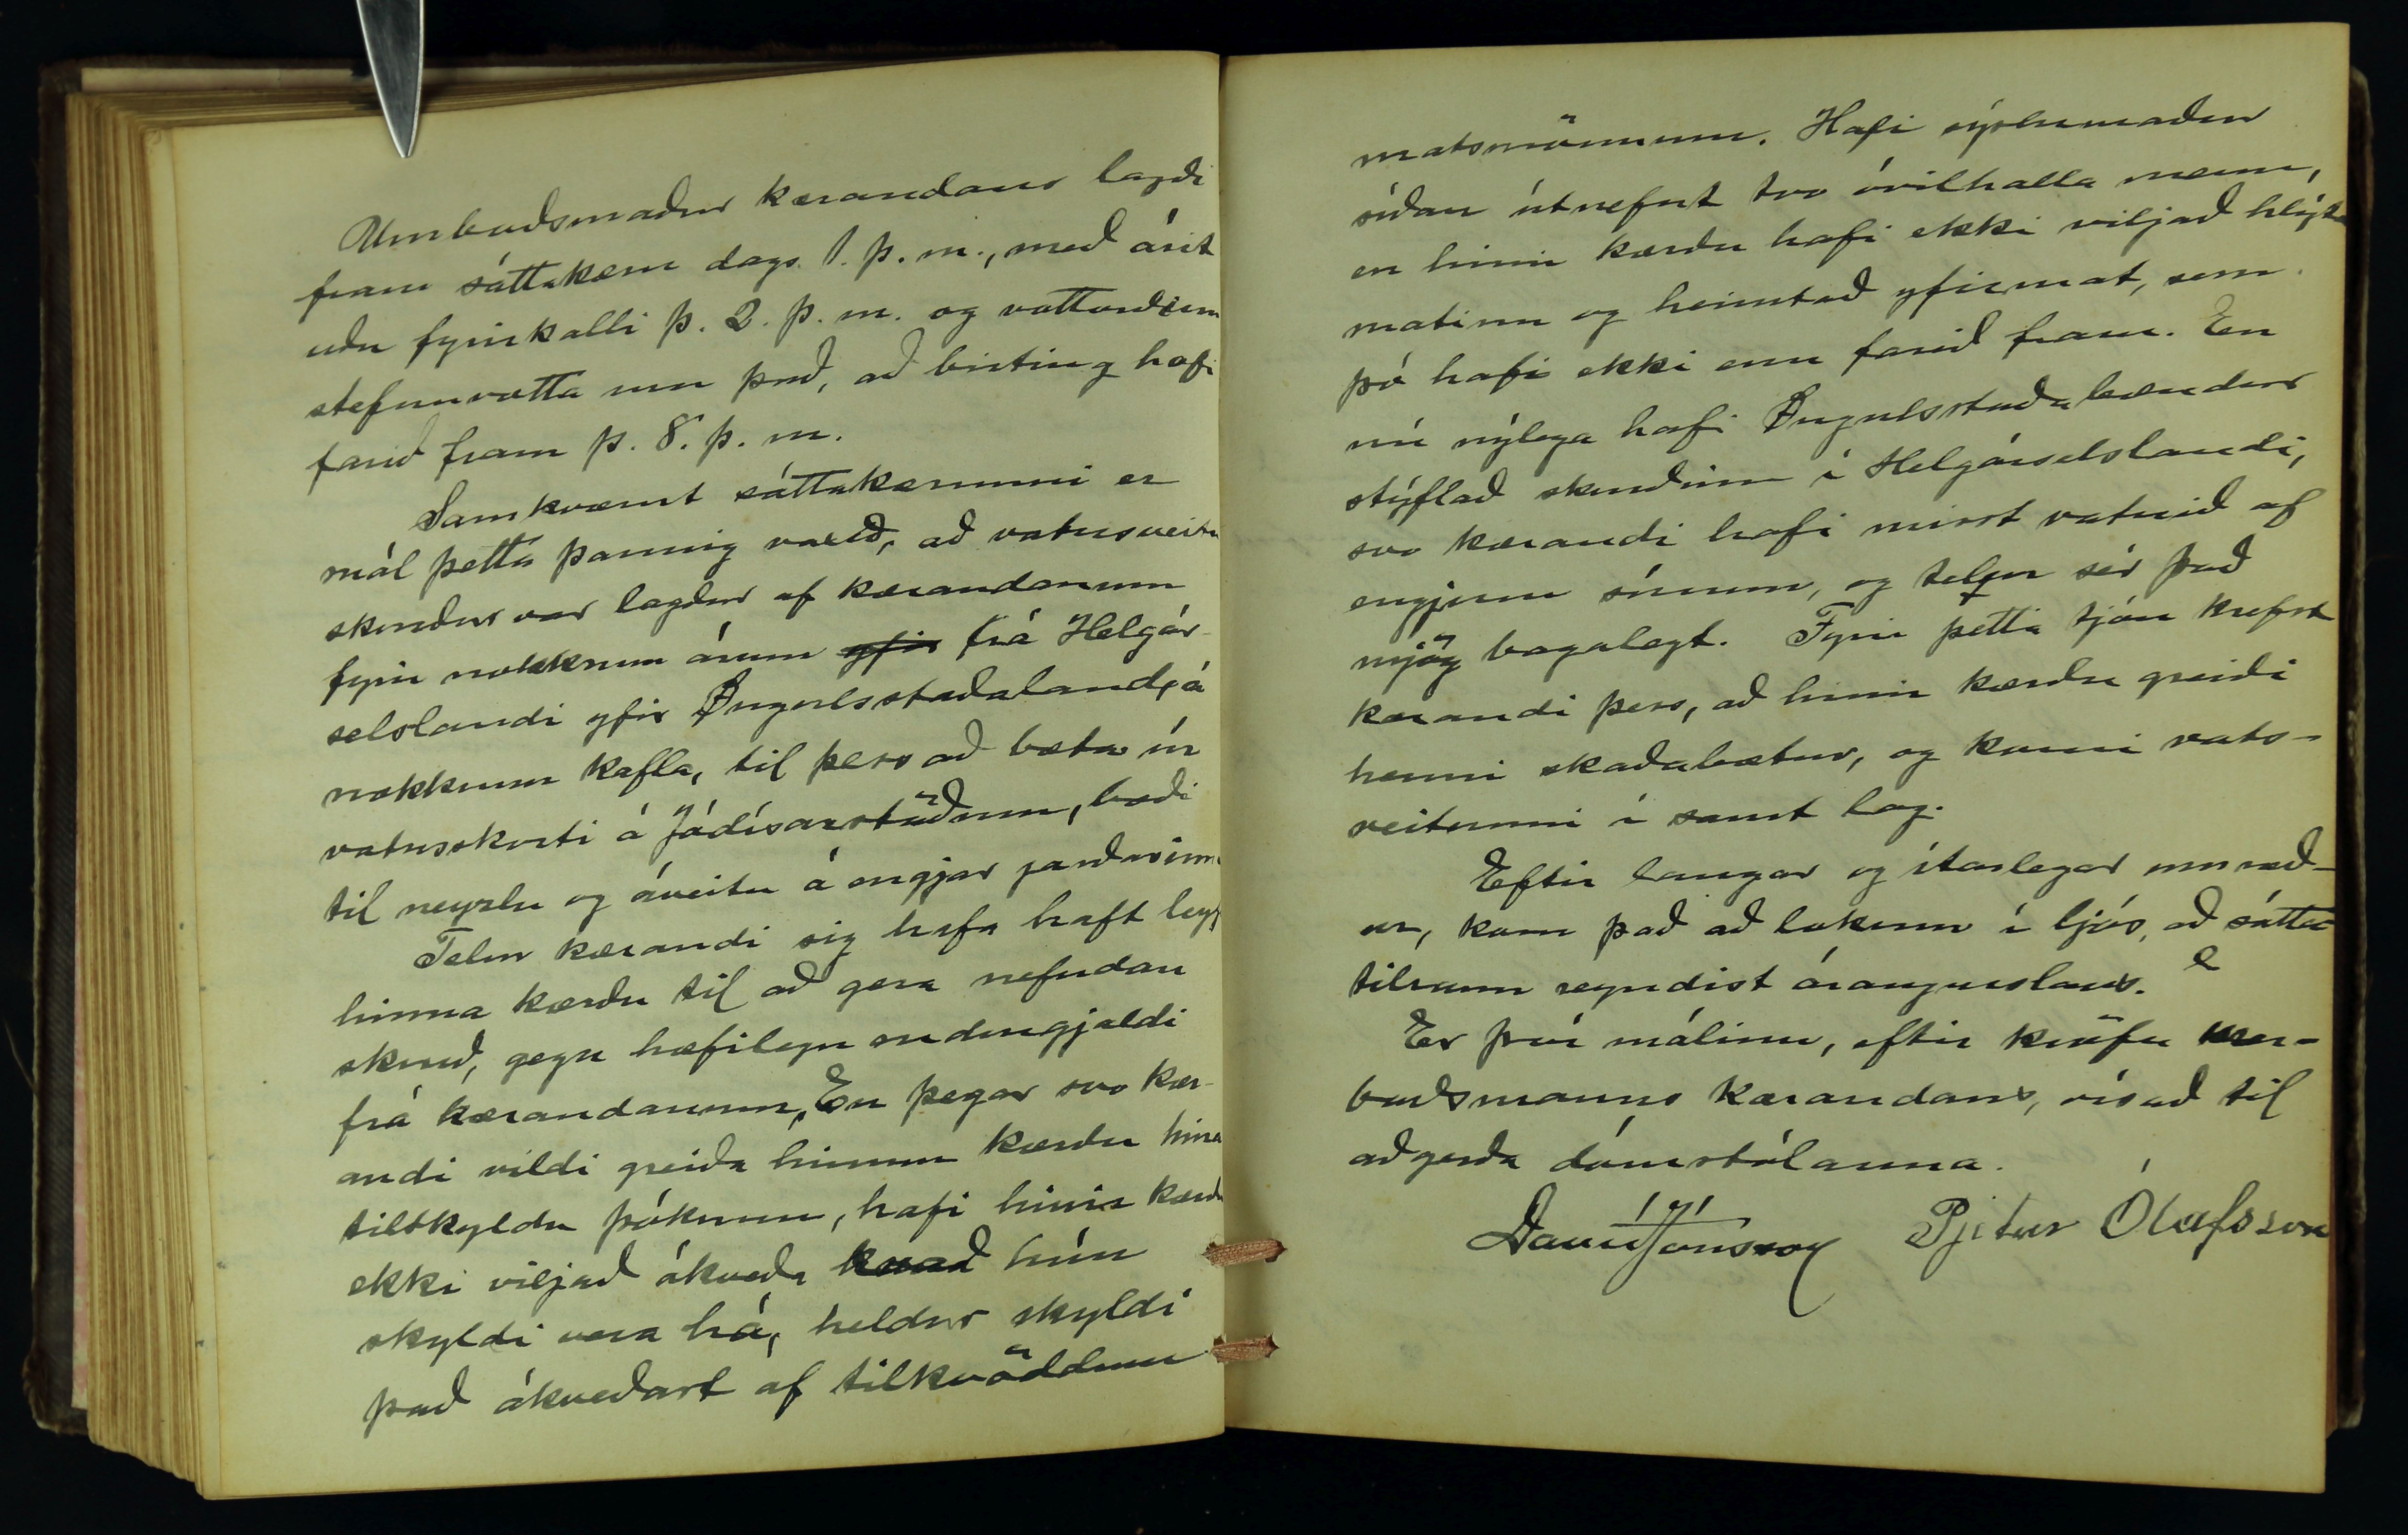 Umboðsmaður kærandans lagði
fram sáttakæru dags. 1. þ. m., með árit
uðu fyrirkalli þ. 2. þ. m. og vottorðum
stefnuvotta um það, að birting hafi
farið fram þ. 8. þ. m.
Samkvæmt sáttakærunni er
mál þetta þannig vaxið, að vatnsveitu
skurður var lagður af kærandanum
fyrir nokkrum árum yfir frá Helgár-
selslandi yfir Öngulsstaðaland, á
nokkrum kafla, til þess að bæta úr
vatnsskorti á Jódísarstöðum, bæði
til neyslu og áveitu á engjar jarðarinnar
Telur kærandi sig hafa haft leyfi
hinna kærðu til að gera nefndan
skurð, gegn hæfilegu endurgjaldi
frá kærandanum. En þegar svo kær-
andi vildi greiða hinum kærðu hina
tilskyldu þóknun, hafi hinir kærðu
ekki viljað ákveða hvað hún
skyldi vera há, heldur skyldi
það ákveðast af tilkvöddum
matsmönnum. Hafi sýslumaður
síðan útnefnt tvo óvilhalla menn,
en hinir kærðu hafi ekki viljað hlýta
matinu og heimtað yfirmat, sem
þó hafi ekki enn farið fram. En
nú nýlega hafi Öngulsstaðabændur
stýflað skurðinn í Helgárselslandi,
svo kærandi hafi misst vatnið af
engjum sínum, og telur sér það
mjög bagalegt. Fyrir þetta tjón krefst
kærandi þess, að hinir kærðu greiði
henni skaðabætur, og komi vats-
veitunni í samt lag.
Eftir langar og ítarlegar umræð-
ur, kom það að lokum í ljós, að sátta-
tilraun reyndist árangurslaus.
Er því málinu, eftir kröfu um-
boðsmanns kærandans, vísað til
aðgerða dómstólanna.
Davíð Jónsson Pjetur Ólafsson